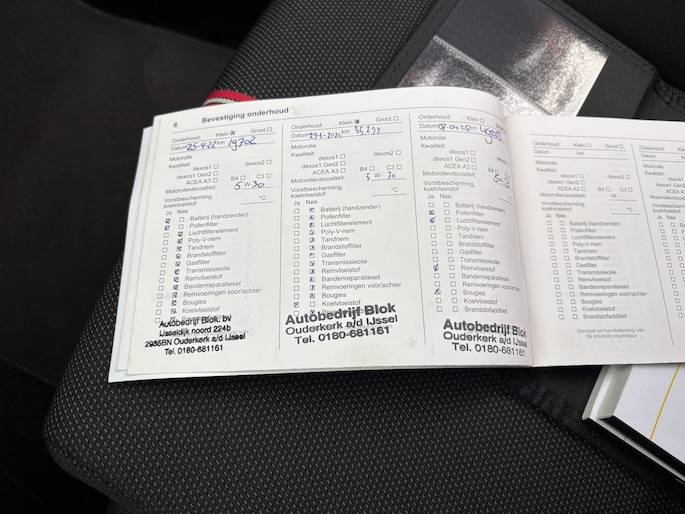 6 Bevestiging onderhoud
Onderhoud: Klein Groot
Datum 25-4-22 km 19702
Motorolie
Kwaliteit:
dexos1 dexos2
dexos1 Gen2
ACEA A3 B4 C3
Motorolieviscositeit: 5 W- 30
Vorstbescherming, koelvloeistof °C
Ja Nee
Batterij (handzender)
Pollenfilter
Luchtfilterelement
Poly-V-riem
Tandriem
Brandstoffilter
Gasfilter
Transmissieolie
Remvloeistof
Bandenreparatieset
Remvoeringen voor/achter
Bougies
Koelvloeistof
Autobedrijf Blok. bv
IJsseldijk noord 224b
2935BN Ouderkerk a/d IJssel
Tel. 0180-681161
Onderhoud: Klein Groot
Datum km 35,297
Motorolie
Kwaliteit:
dexos1 dexos2
dexos1 Gen2
ACEA A3 B4 C3
Motorolieviscositeit: 5 W- 30
Vorstbescherming, koelvloeistof °C
Ja Nee
Batterij (handzender)
Pollenfilter
Luchtfilterelement
Poly-V-riem
Tandriem
Brandstoffilter
Gasfilter
Transmissieolie
Remvloeistof
Bandenreparatieset
Remvoeringen voor/achter
Bougies
Koelvloeistof
Autobedrijf Blok
Ouderkerk a/d IJssel
Tel. 0180-681161
Onderhoud: Klein Groot
Datum km
Motorolie
Kwaliteit:
dexos1 dexos2
dexos1 Gen2
ACEA A3 B4 C3
Motorolieviscositeit:
Vorstbescherming, koelvloeistof °C
Ja Nee
Batterij (handzender)
Pollenfilter
Luchtfilterelement
Poly-V-riem
Tandriem
Brandstoffilter
Gasfilter
Transmissieolie
Remvloeistof
Bandenreparatieset
Remvoeringen voor/achter
Bougies
Koelvloeistof
Brandstofadditief
Autobedrijf Blok
Ouderkerk a/d IJssel
Tel. 0180-681161
Onderhoud: Klein Groot
Datum km
Motorolie
Kwaliteit:
dexos1 dexos2
dexos1 Gen2
ACEA A3 B4 C3
Motorolieviscositeit: W-
Vorstbescherming, koelvloeistof °C
Ja Nee
Batterij (handzender)
Pollenfilter
Luchtfilterelement
Poly-V-riem
Tandriem
Brandstoffilter
Gasfilter
Transmissieolie
Remvloeistof
Bandenreparatieset
Remvoeringen voor/achter
Bougies
Koelvloeistof
Brandstofadditief
Stempel en handtekening van
de erkende reparateur